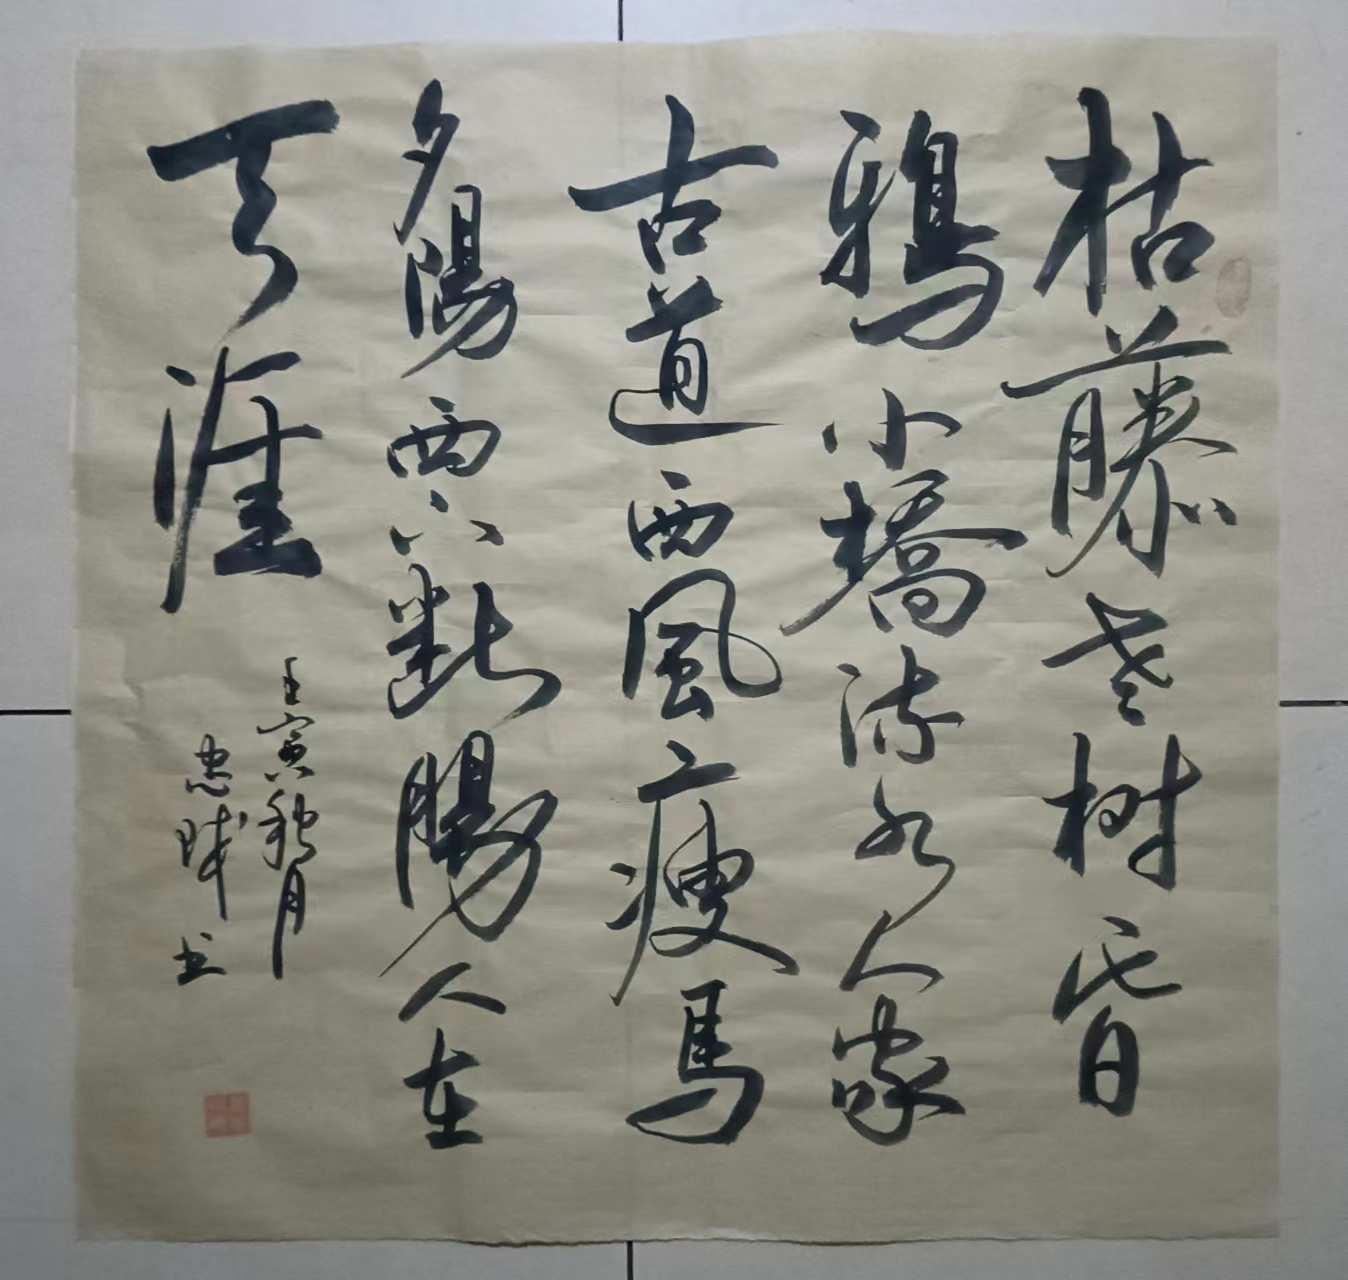 枯藤老树昏
鴉小橋流水人家
古道西風瘦馬
夕陽西下断腸人在
天涯
壬寅秋月
忠诚书